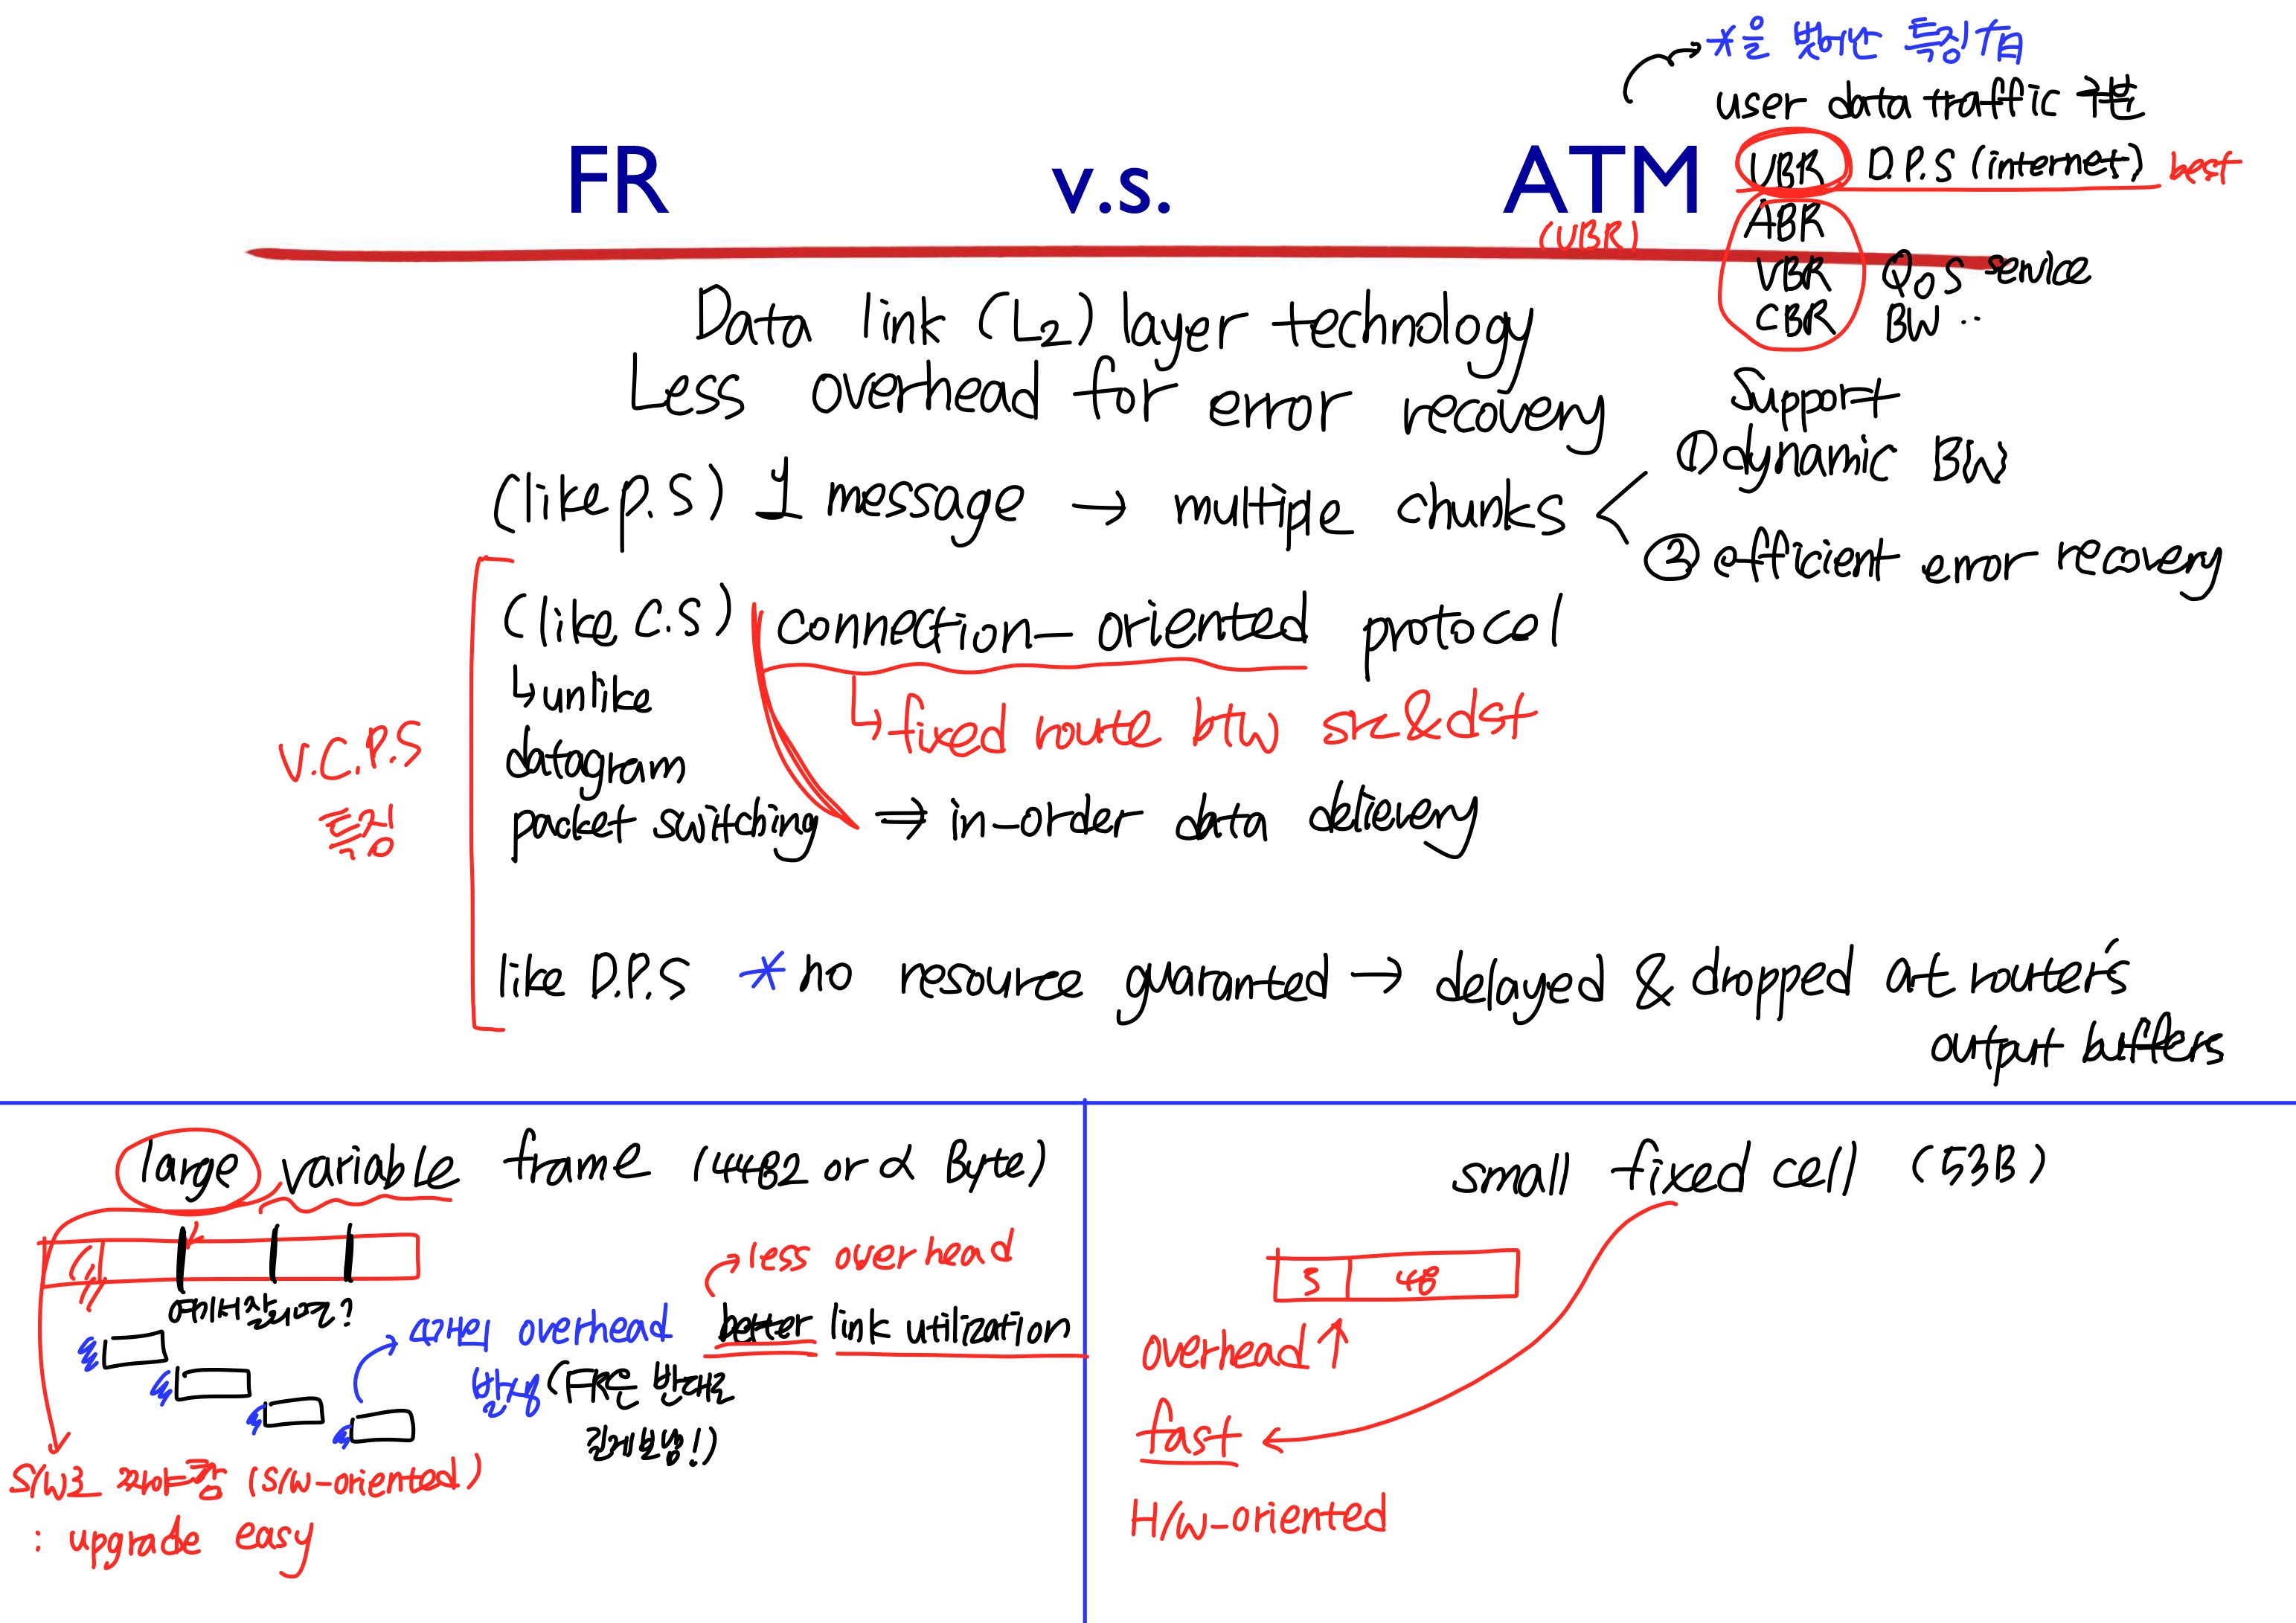 *을 벗어난 특징有
user data traffic 구분
FR v.s. ATM
UBR D.P.S (internet) best
ABR
(UBR)
VBR QoS service
CBR BW ..
Data link (L2) layer technology
Less overhead for error recovery
(like P.S) 1 message → multiple chunks
Support
① dynamic BW
② efficient error recovery
(like C.S) connection-oriented protocol
↳ unlike
datagram
packet switching
↳ fixed route btw src&dst
⇒ in-order data delivery
V.C.P.S
특징
like D.P.S * no resource guaranted → delayed & dropped at router's
output buffers
large variable frame (4482 or α Byte)
less overhead
better link utilization
overhead
발생 (FR은 반대로
S/W로 (S/W-oriented)
: upgrade easy
small fixed cell (53B)
5 48
overhead ↑
fast
H/W-oriented